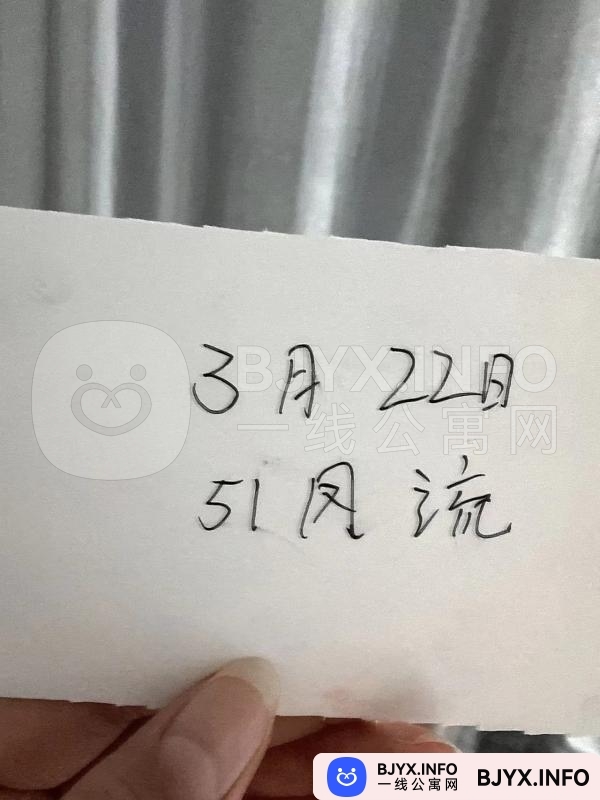 BJYX.INFO
一线公寓网
3月22日
51风流
BJYX.INFO
一线公寓网
BJYX.INFO